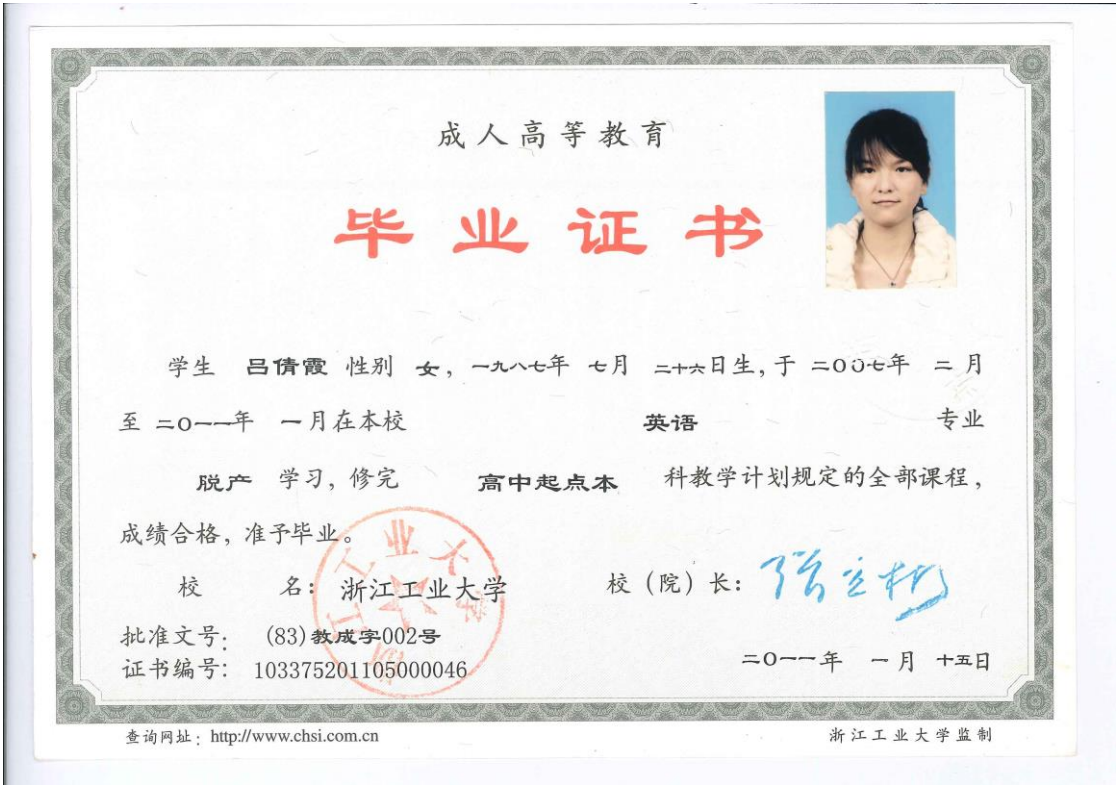 成人高等教育
毕业证书
学生 吕倩霞 性别 女，一九八七年 七月 二十六日生，于 二00七年 二 月
至 二0一一年 一月在本校 英语 专业
脱产 学习，修完 高中起点本 科教学计划规定的全部课程，
成绩合格，准予毕业。
浙江工业大学
校 名：浙江工业大学 校（院）长：张立彬
批准文号： (83)教成字002号
证书编号： 103375201105000046
二0一一年 一月 十五日
查询网址：http://www.chsi.com.cn 浙江工业大学监制